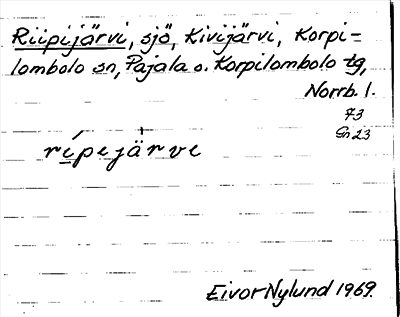 Riipijärvi, sjö, Kivijärvi, Korpi=
lombolo sn, Pajala o. Korpilombolo tg,
Norrb. l.
73
Gn 23
rípejärve
Eivor Nylund 1969.